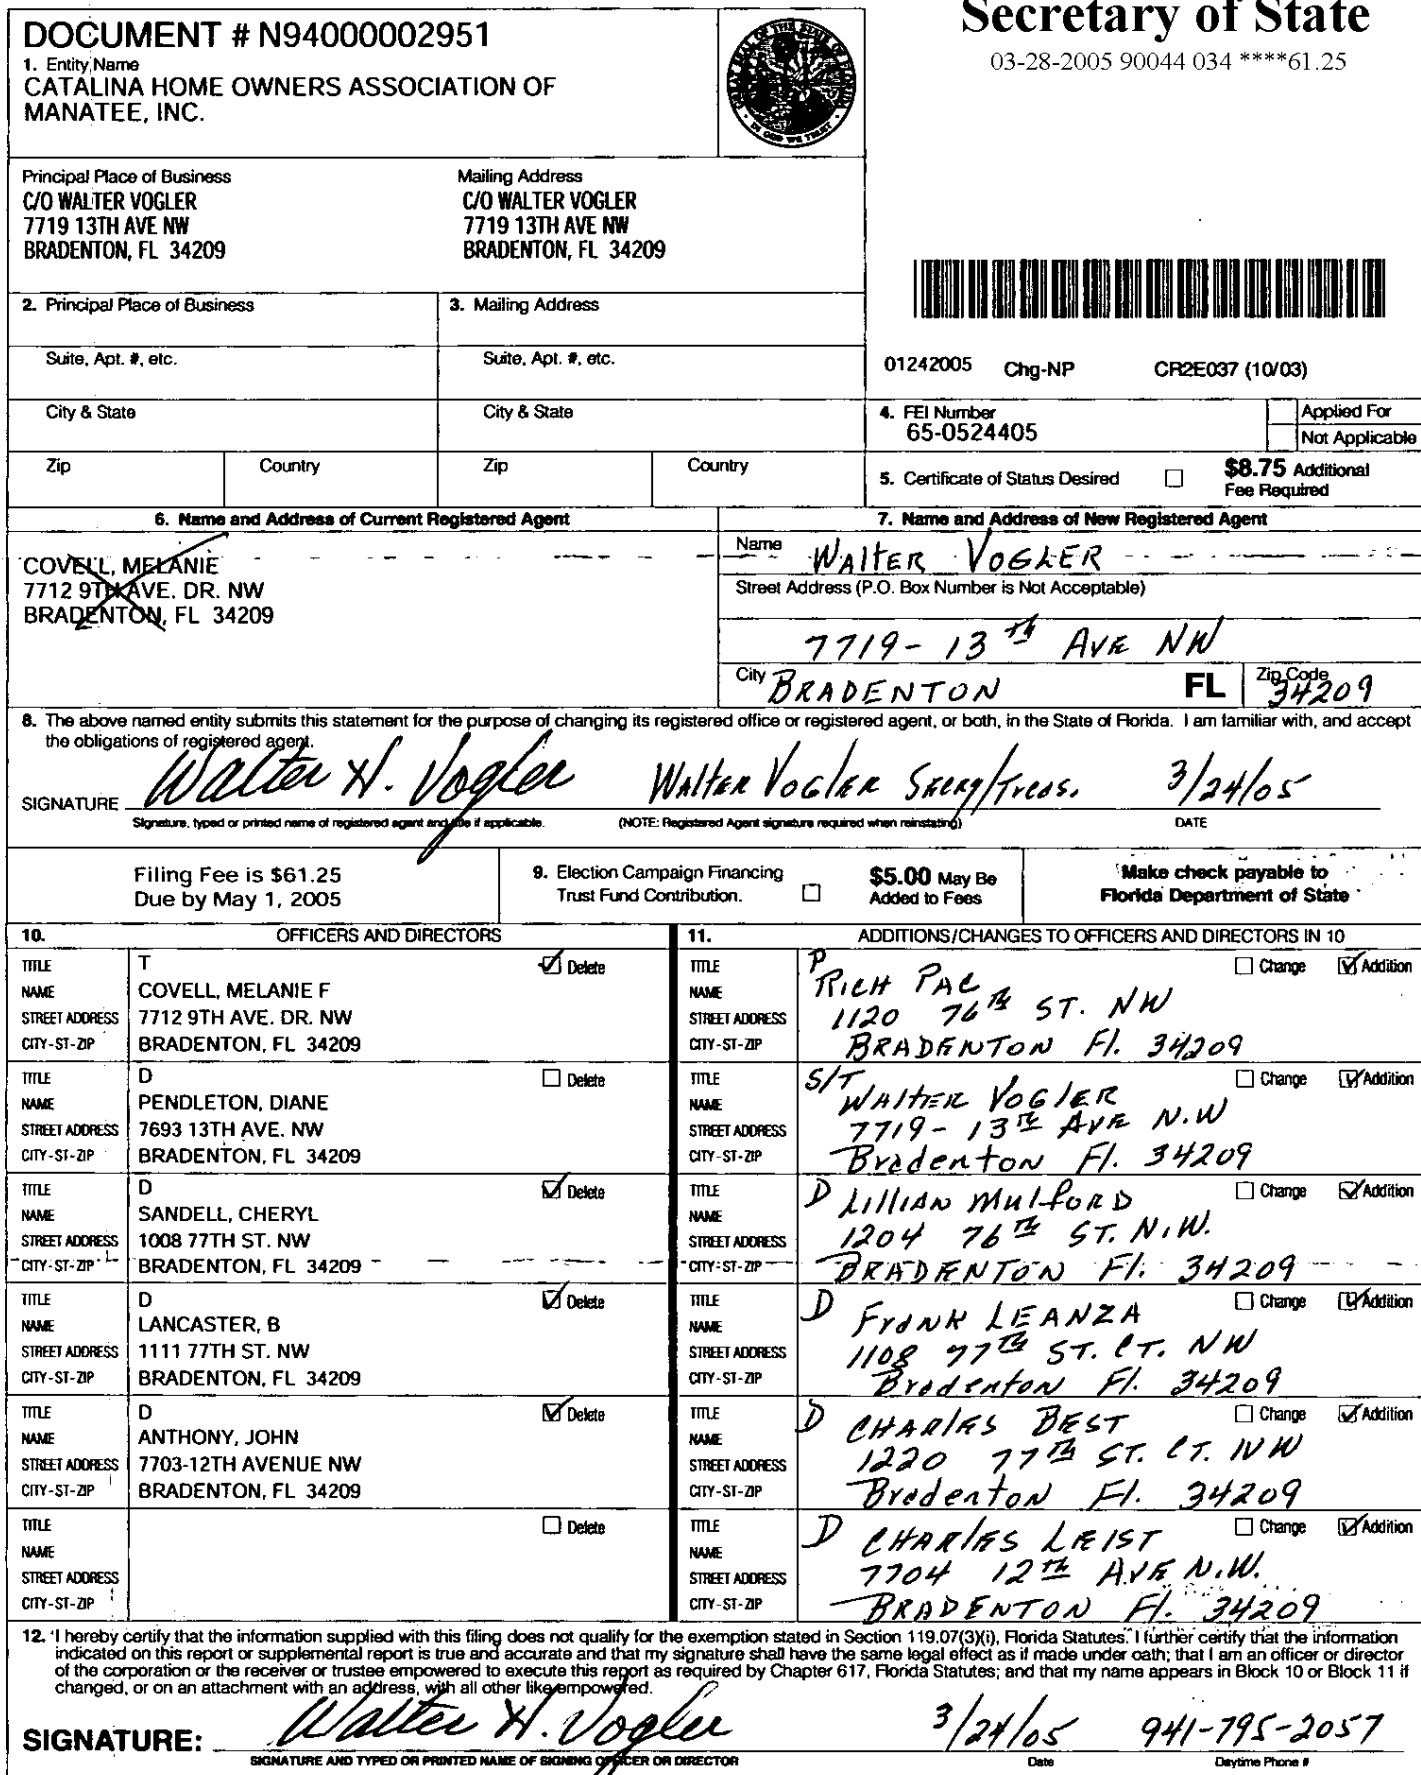 Secretary of State
03-28-2005 90044 034 ****61.25
DOCUMENT # N94000002951
1. Entity Name
CATALINA HOME OWNERS ASSOCIATION OF
MANATEE, INC.
Principal Place of Business
C/O WALTER VOGLER
7719 13TH AVE NW
BRADENTON, FL 34209
Mailing Address
C/O WALTER VOGLER
7719 13TH AVE NW
BRADENTON, FL 34209
2. Principal Place of Business
3. Mailing Address
Suite, Apt. #, etc.
Suite, Apt. #, etc.
01242005 Chg-NP CR2E037 (10/03)
City & State
City & State
4. FEI Number
65-0524405
Applied For
Not Applicable
Zip Country
Zip Country
5. Certificate of Status Desired
$8.75 Additional
Fee Required
6. Name and Address of Current Registered Agent
COVELL, MELANIE
7712 9TH AVE. DR. NW
BRADENTON, FL 34209
7. Name and Address of New Registered Agent
Name WAlTER VOGLER
Street Address (P.O. Box Number is Not Acceptable)
7719 - 13th AVE NW
City BRADENTON FL Zip Code 34209
8. The above named entity submits this statement for the purpose of changing its registered office or registered agent, or both, in the State of Florida. I am familiar with, and accept
the obligations of registered agent.
SIGNATURE Walter H. Vogler Walter Vogler Secry/Treas. 3/24/05
Signature, typed or printed name of registered agent and title if applicable. (NOTE: Registered Agent signature required when reinstating) DATE
Filing Fee is $61.25
Due by May 1, 2005
9. Election Campaign Financing
Trust Fund Contribution.
$5.00 May Be
Added to Fees
Make check payable to
Florida Department of State
10. OFFICERS AND DIRECTORS
TITLE T Delete
NAME COVELL, MELANIE F
STREET ADDRESS 7712 9TH AVE. DR. NW
CITY-ST-ZIP BRADENTON, FL 34209
TITLE D Delete
NAME PENDLETON, DIANE
STREET ADDRESS 7693 13TH AVE. NW
CITY-ST-ZIP BRADENTON, FL 34209
TITLE D Delete
NAME SANDELL, CHERYL
STREET ADDRESS 1008 77TH ST. NW
CITY-ST-ZIP BRADENTON, FL 34209
TITLE D Delete
NAME LANCASTER, B
STREET ADDRESS 1111 77TH ST. NW
CITY-ST-ZIP BRADENTON, FL 34209
TITLE D Delete
NAME ANTHONY, JOHN
STREET ADDRESS 7703-12TH AVENUE NW
CITY-ST-ZIP BRADENTON, FL 34209
TITLE Delete
NAME
STREET ADDRESS
CITY-ST-ZIP
11. ADDITIONS/CHANGES TO OFFICERS AND DIRECTORS IN 10
TITLE P Change Addition
NAME RICH PAC
STREET ADDRESS 1120 76th ST. NW
CITY-ST-ZIP BRADENTON Fl. 34209
TITLE S/T Change Addition
NAME WAlTER VOGlER
STREET ADDRESS 7719 - 13th AVE N.W
CITY-ST-ZIP Bradenton Fl. 34209
TITLE D Change Addition
NAME LILLIAN MULFORD
STREET ADDRESS 1204 76th ST. N.W.
CITY-ST-ZIP BRADENTON Fl. 34209
TITLE D Change Addition
NAME FrANK LEANZA
STREET ADDRESS 1108 77th ST. CT. NW
CITY-ST-ZIP Bradenton Fl. 34209
TITLE D Change Addition
NAME CHARlES BEST
STREET ADDRESS 1220 77th ST. CT. NW
CITY-ST-ZIP Bradenton Fl. 34209
TITLE D Change Addition
NAME CHARlES LEIST
STREET ADDRESS 7704 12th AVE N.W.
CITY-ST-ZIP BRADENTON Fl. 34209
12. I hereby certify that the information supplied with this filing does not qualify for the exemption stated in Section 119.07(3)(i), Florida Statutes. I further certify that the information
indicated on this report or supplemental report is true and accurate and that my signature shall have the same legal effect as if made under oath; that I am an officer or director
of the corporation or the receiver or trustee empowered to execute this report as required by Chapter 617, Florida Statutes; and that my name appears in Block 10 or Block 11 if
changed, or on an attachment with an address, with all other like empowered.
SIGNATURE: Walter H. Vogler 3/24/05 941-795-2057
SIGNATURE AND TYPED OR PRINTED NAME OF SIGNING OFFICER OR DIRECTOR Date Daytime Phone #